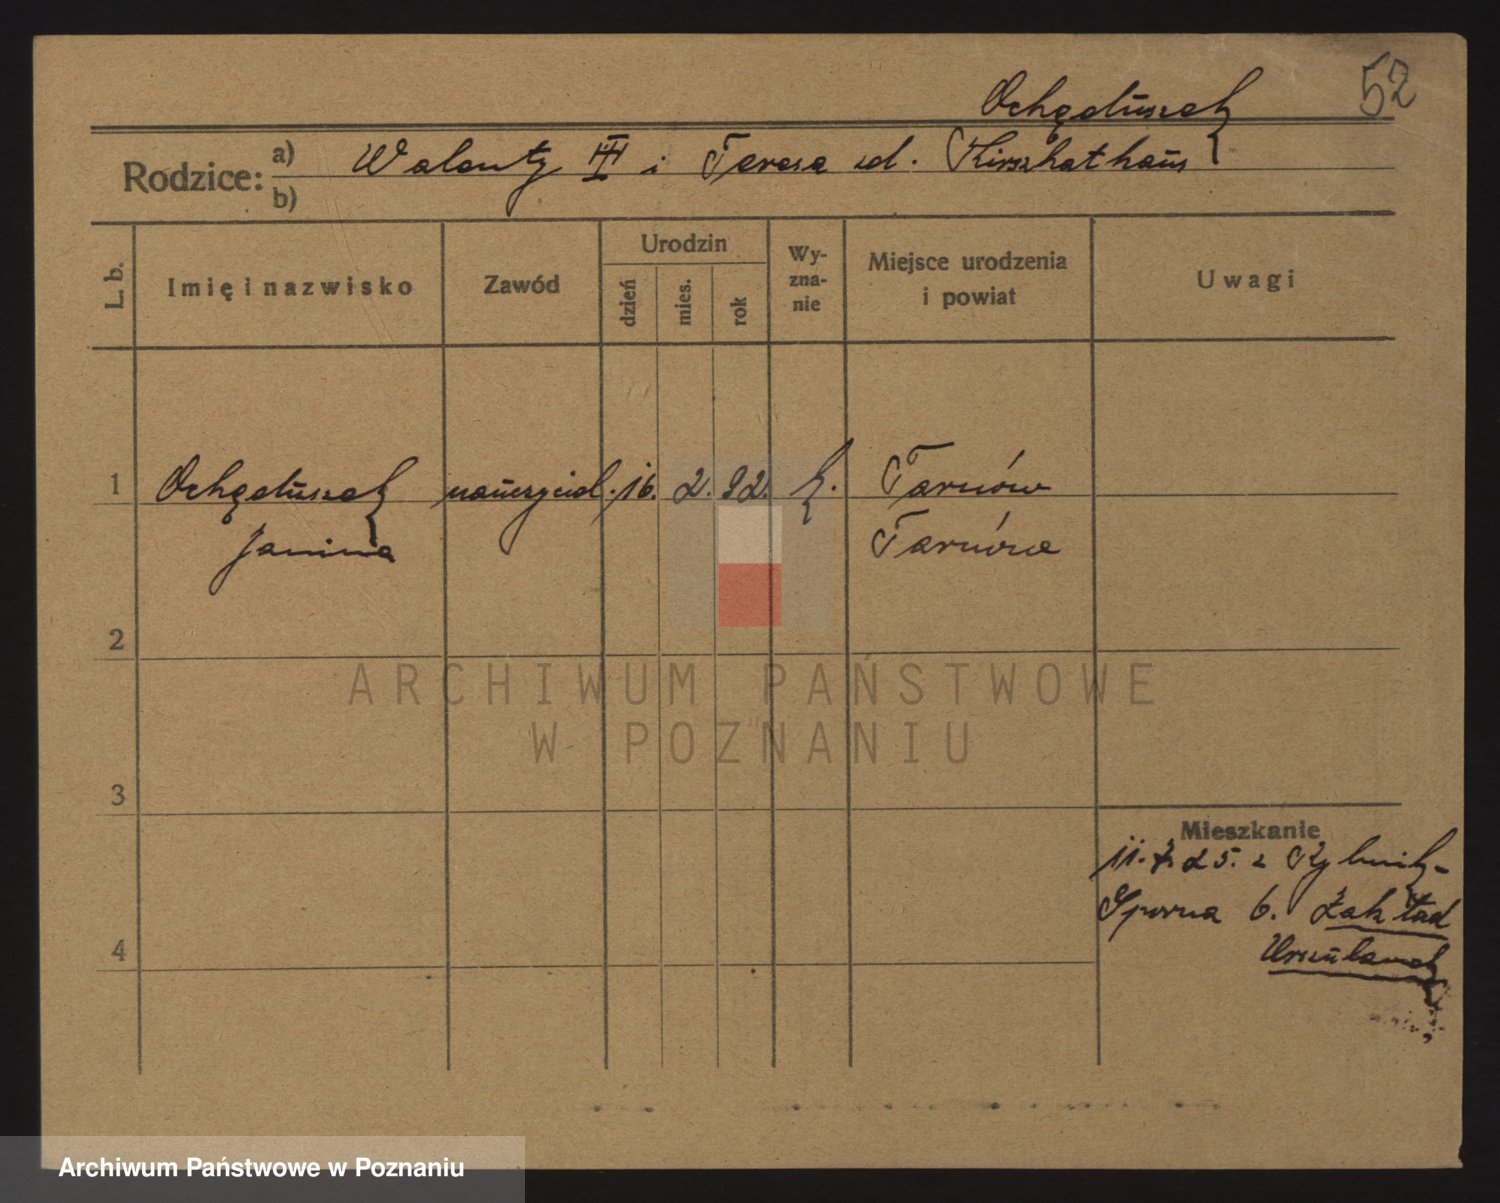 52
Ochęduszek
Rodzice: a) Walenty III i Teresa zd.
b)
L. b. Imię i nazwisko Zawód Urodzin dzień mies. rok Wy-zna-nie Miejsce urodzenia i powiat Uwagi
1 Ochęduszek nauczyciel. 16. 2. 92. k. Tarnów
Janina Tarnów
2
3
4
Mieszkanie
11. 7. 25. z Rybnik-
Sporna 6. Zakład
Urszulanek
ARCHIWUM PAŃSTWOWE
W POZNANIU
Archiwum Państwowe w Poznaniu